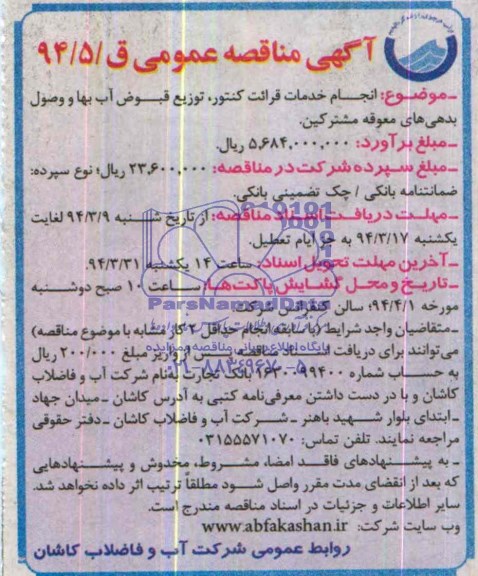 آگهی مناقصه عمومی ق/۹۴/۵
ـ موضوع: انجام خدمات قرائت کنتور، توزیع قبوض آب بها و وصول
بدهی‌های معوقه مشترکین.
ـ مبلغ برآورد: ۵,۶۸۴,۰۰۰,۰۰۰ ریال.
ـ مبلغ سپرده شرکت در مناقصه: ۲۳,۶۰۰,۰۰۰ ریال؛ نوع سپرده:
ضمانتنامه بانکی / چک تضمینی بانکی.
ـ مهلت دریافت اسناد مناقصه: از تاریخ شنبه ۹۴/۳/۹ لغایت
یکشنبه ۹۴/۳/۱۷ به جز ایام تعطیل.
ـ آخرین مهلت تحویل اسناد: ساعت ۱۴ یکشنبه ۹۴/۳/۳۱.
ـ تاریخ و محل گشایش پاکت‌ها: ساعت ۱۰ صبح دوشنبه
مورخه ۹۴/۴/۱؛ سالن کنفرانس شرکت
ـ متقاضیان واجد شرایط (با سابقه انجام حداقل ۲ کار مشابه با موضوع مناقصه)
می‌توانند برای دریافت اسناد مناقصه پس از واریز مبلغ ۲۰۰/۰۰۰ ریال
به حساب شماره ۱۶۳۰۰۹۹۴۰۰ بانک تجارت به‌نام شرکت آب و فاضلاب
کاشان و با در دست داشتن معرفی‌نامه کتبی به آدرس کاشان ـ میدان جهاد
ـ ابتدای بلوار شهید باهنر ـ شرکت آب و فاضلاب کاشان ـ دفتر حقوقی
مراجعه نمایند. تلفن تماس: ۰۳۱۵۵۵۷۱۰۷۰
ـ به پیشنهادهای فاقد امضا، مشروط، مخدوش و پیشنهادهایی
که بعد از انقضای مدت مقرر واصل شود مطلقاً ترتیب اثر داده نخواهد شد.
سایر اطلاعات و جزئیات در اسناد مناقصه مندرج است.
وب سایت شرکت: www.abfakashan.ir
روابط عمومی شرکت آب و فاضلاب کاشان
ParsNamadData
پایگاه اطلاع رسانی مناقصه و مزایده
۰۲۱-۸۸۳۴۹۶۷۰-۵